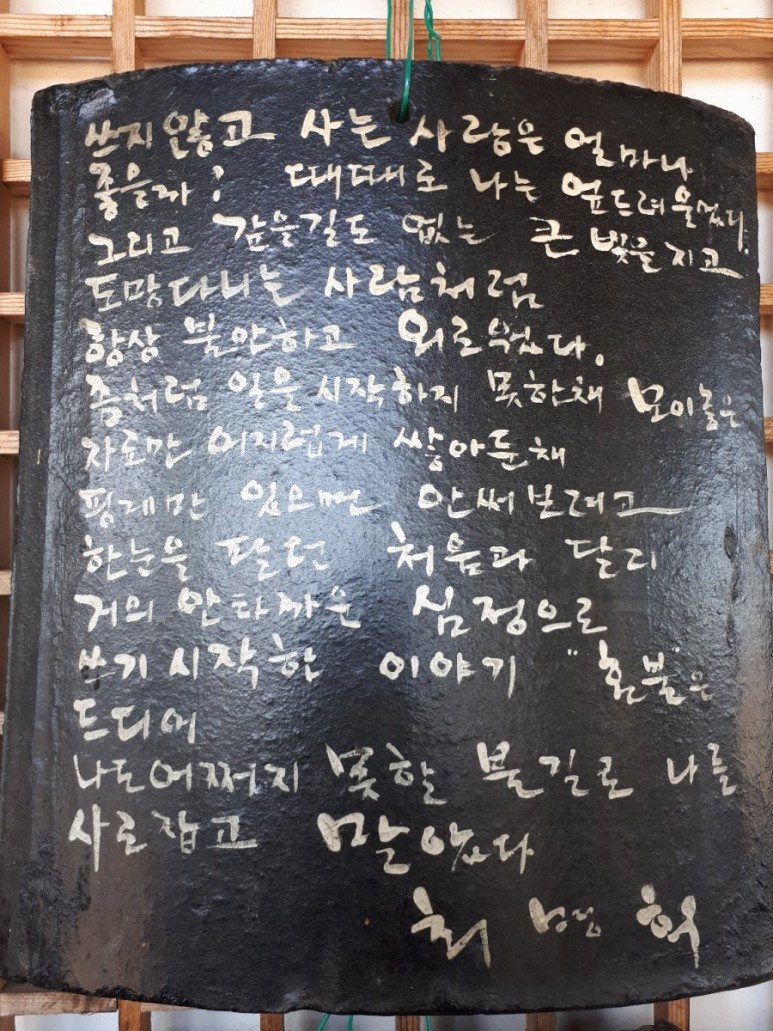 쓰지 않고 사는 사람은 얼마나
좋을까? 때때로 나는 엎드려 울었다.
그리고 갚을길도 없는 큰 빚을 지고
도망다니는 사람처럼
항상 불안하고 외로웠다.
좀처럼 일을 시작하지 못한채 모아놓은
자료만 어지럽게 쌓아둔채
핑계만 있으면 안써보려고
한눈을 팔던 처음과 달리
거의 안타까운 심정으로
쓰기 시작한 이야기 "혼불"은
드디어
나도 어쩌지 못할 불길로 나를
사로잡고 말았다
최 명 희